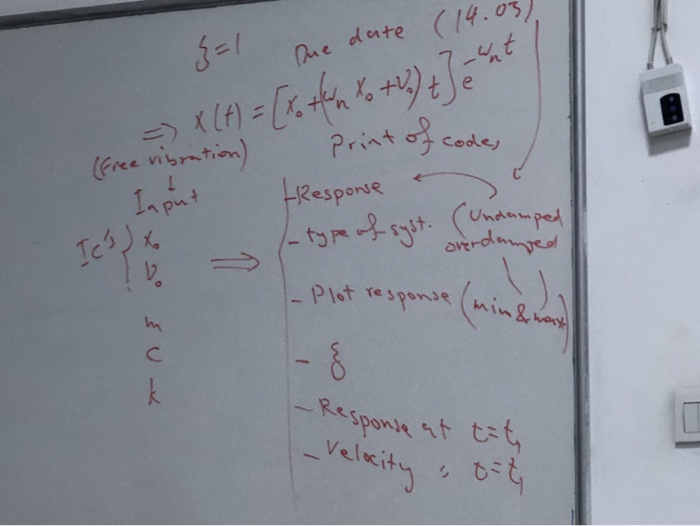 ξ=1 Due date (14.03)
⇒ x(t) = [x₀+(ωₙ x₀+v₀) t] e^-ωₙt
(Free vibration) Print of codes
Input
Ic's } x₀
v₀
m
c
k
⇒
-Response
- type of syst. (Undamped
overdamped
- Plot response (min & max)
- ξ
- Response at t=t₁
- Velocity " t=t₁